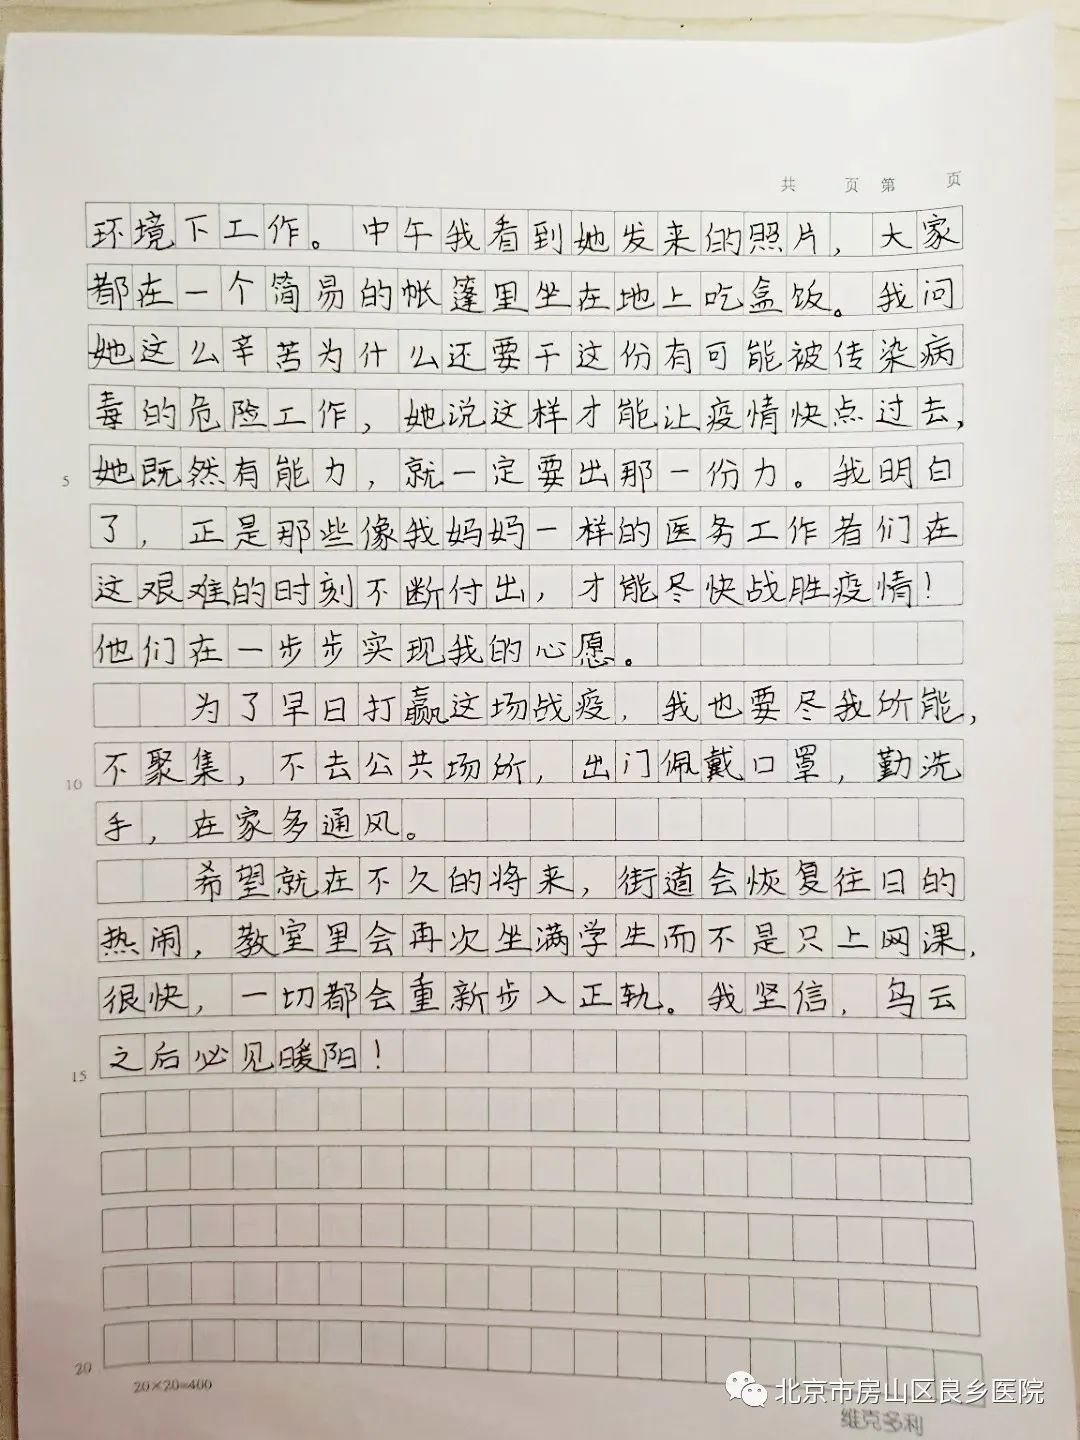 共 页 第 页
环境下工作。中午我看到她发来的照片，大家
都在一个简易的帐篷里坐在地上吃盒饭。我问
她这么辛苦为什么还要干这份有可能被传染病
毒的危险工作，她说这样才能让疫情快点过去，
5 她既然有能力，就一定要出那一份力。我明白
了，正是那些像我妈妈一样的医务工作者们在
这艰难的时刻不断付出，才能尽快战胜疫情！
他们在一步步实现我的心愿。
为了早日打赢这场战疫，我也要尽我所能，
10 不聚集，不去公共场所，出门佩戴口罩，勤洗
手，在家多通风。
希望就在不久的将来，街道会恢复往日的
热闹，教室里会再次坐满学生而不是只上网课，
很快，一切都会重新步入正轨。我坚信，乌云
15 之后必见暖阳！
20
20×20=400
北京市房山区良乡医院
维克多利